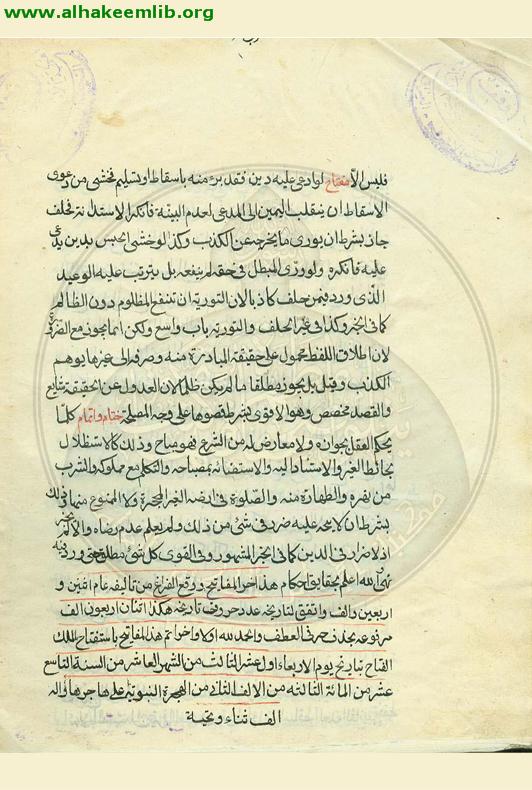 www.alhakeemlib.org
فليس الا مفتاح لو ادعى عليه دين فقد برئ منه باسقاط او تسليم فخشي من دعوى
الاسقاط ان ينقلب اليمين الى المدعي لعدم البينة فانكر الاستدانة وحلف
جاز بشرط ان يورى ما يخرجه عن الكذب وكذا لو خشي الحبس بدين يدعى
عليه فانكره ولو ورّى المبطل في حقه لم ينفعه بل يترتب عليه الوعيد
الذى ورد فيمن حلف كاذبا لان التورية ان تنفع المظلوم دون الظالم
كما في الخبر وكذا في غير الحلف والتورية باب واسع ولكن انما يجوز مع الضرورة
لان اطلاق اللفظ محمول على حقيقة المبادرة منه وصرفه الى غيرها يوهم
الكذب وقيل بل يجوز مطلقا ما لم يكن ظلما لان العدول عن الحقيقة شايع
والقصد مخصص وهو الاقوى بشرط قصوها على وجه المصلحة ختام واتمام كلما
يحكم العقل بجوازه ولا معارض له من الشرع فهو مباح وذلك كالاستظلال
بحائط الغير والاستناد اليه والاستضائة بمصباحه والتكلم مع مملوكه والشرب
من نهره والطهارة منه والصلوة في ارضه الغير المحجرة ولا الممنوع منها ذلك
بشرط ان لا يتجه عليه ضرر في شئ من ذلك ولم يعلم عدم رضاه والا لم يجز
اذ لا ضرار في الدين كما في الخبر المشهور وفي القوى كل شئ مطلق حتى ورد فيه
نهي الله اعلم بحقايق احكام هذا اخر المفاتيح ووقع الفراغ من تاليفه عام اثنين و
اربعين والف واتفق لتاريخه عدد حروف تاريخه هكذا اثنان اربعون الف
مرفوعة بحذف حرف العطف والحمد لله اولا واخرا تم هذا المفاتيح باستفتاح الملك
الفتاح بتاريخ يوم الاربعاء اول عشر الثالث من الشهر العاشر من السنة التاسع
عشر من المائة الثالثة من الالف الثاني من الهجرة النبوية على هاجرها واله
الف ثناء وتحية